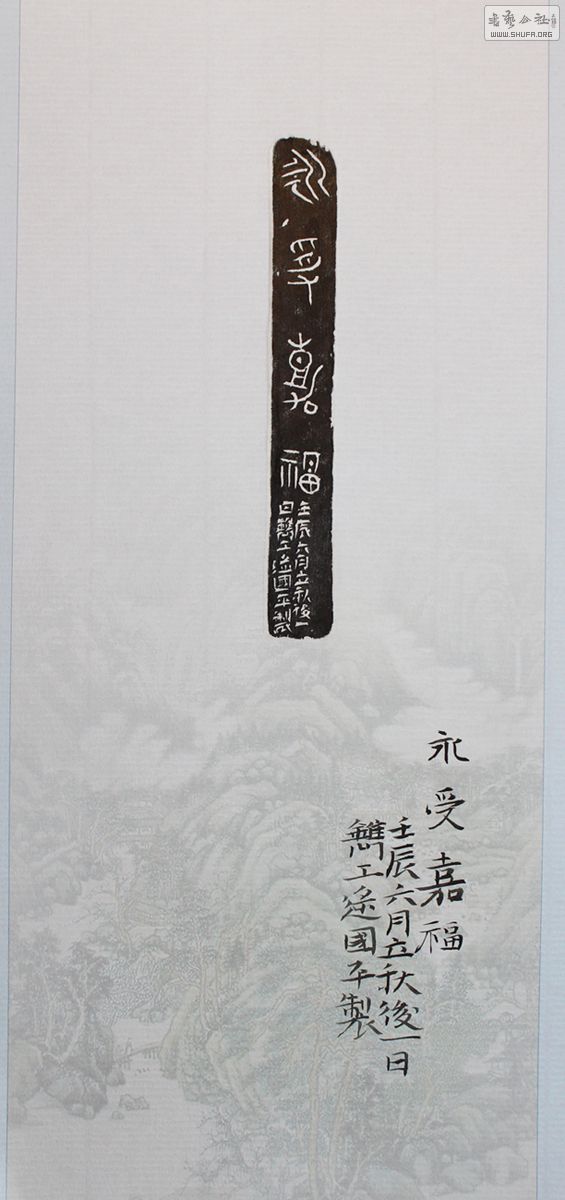 書藝公社
WWW.SHUFA.ORG
永受嘉福
壬辰六月立秋後一
日鐫工逯國平製
永受嘉福
壬辰六月立秋後一日
鐫工逯國平製